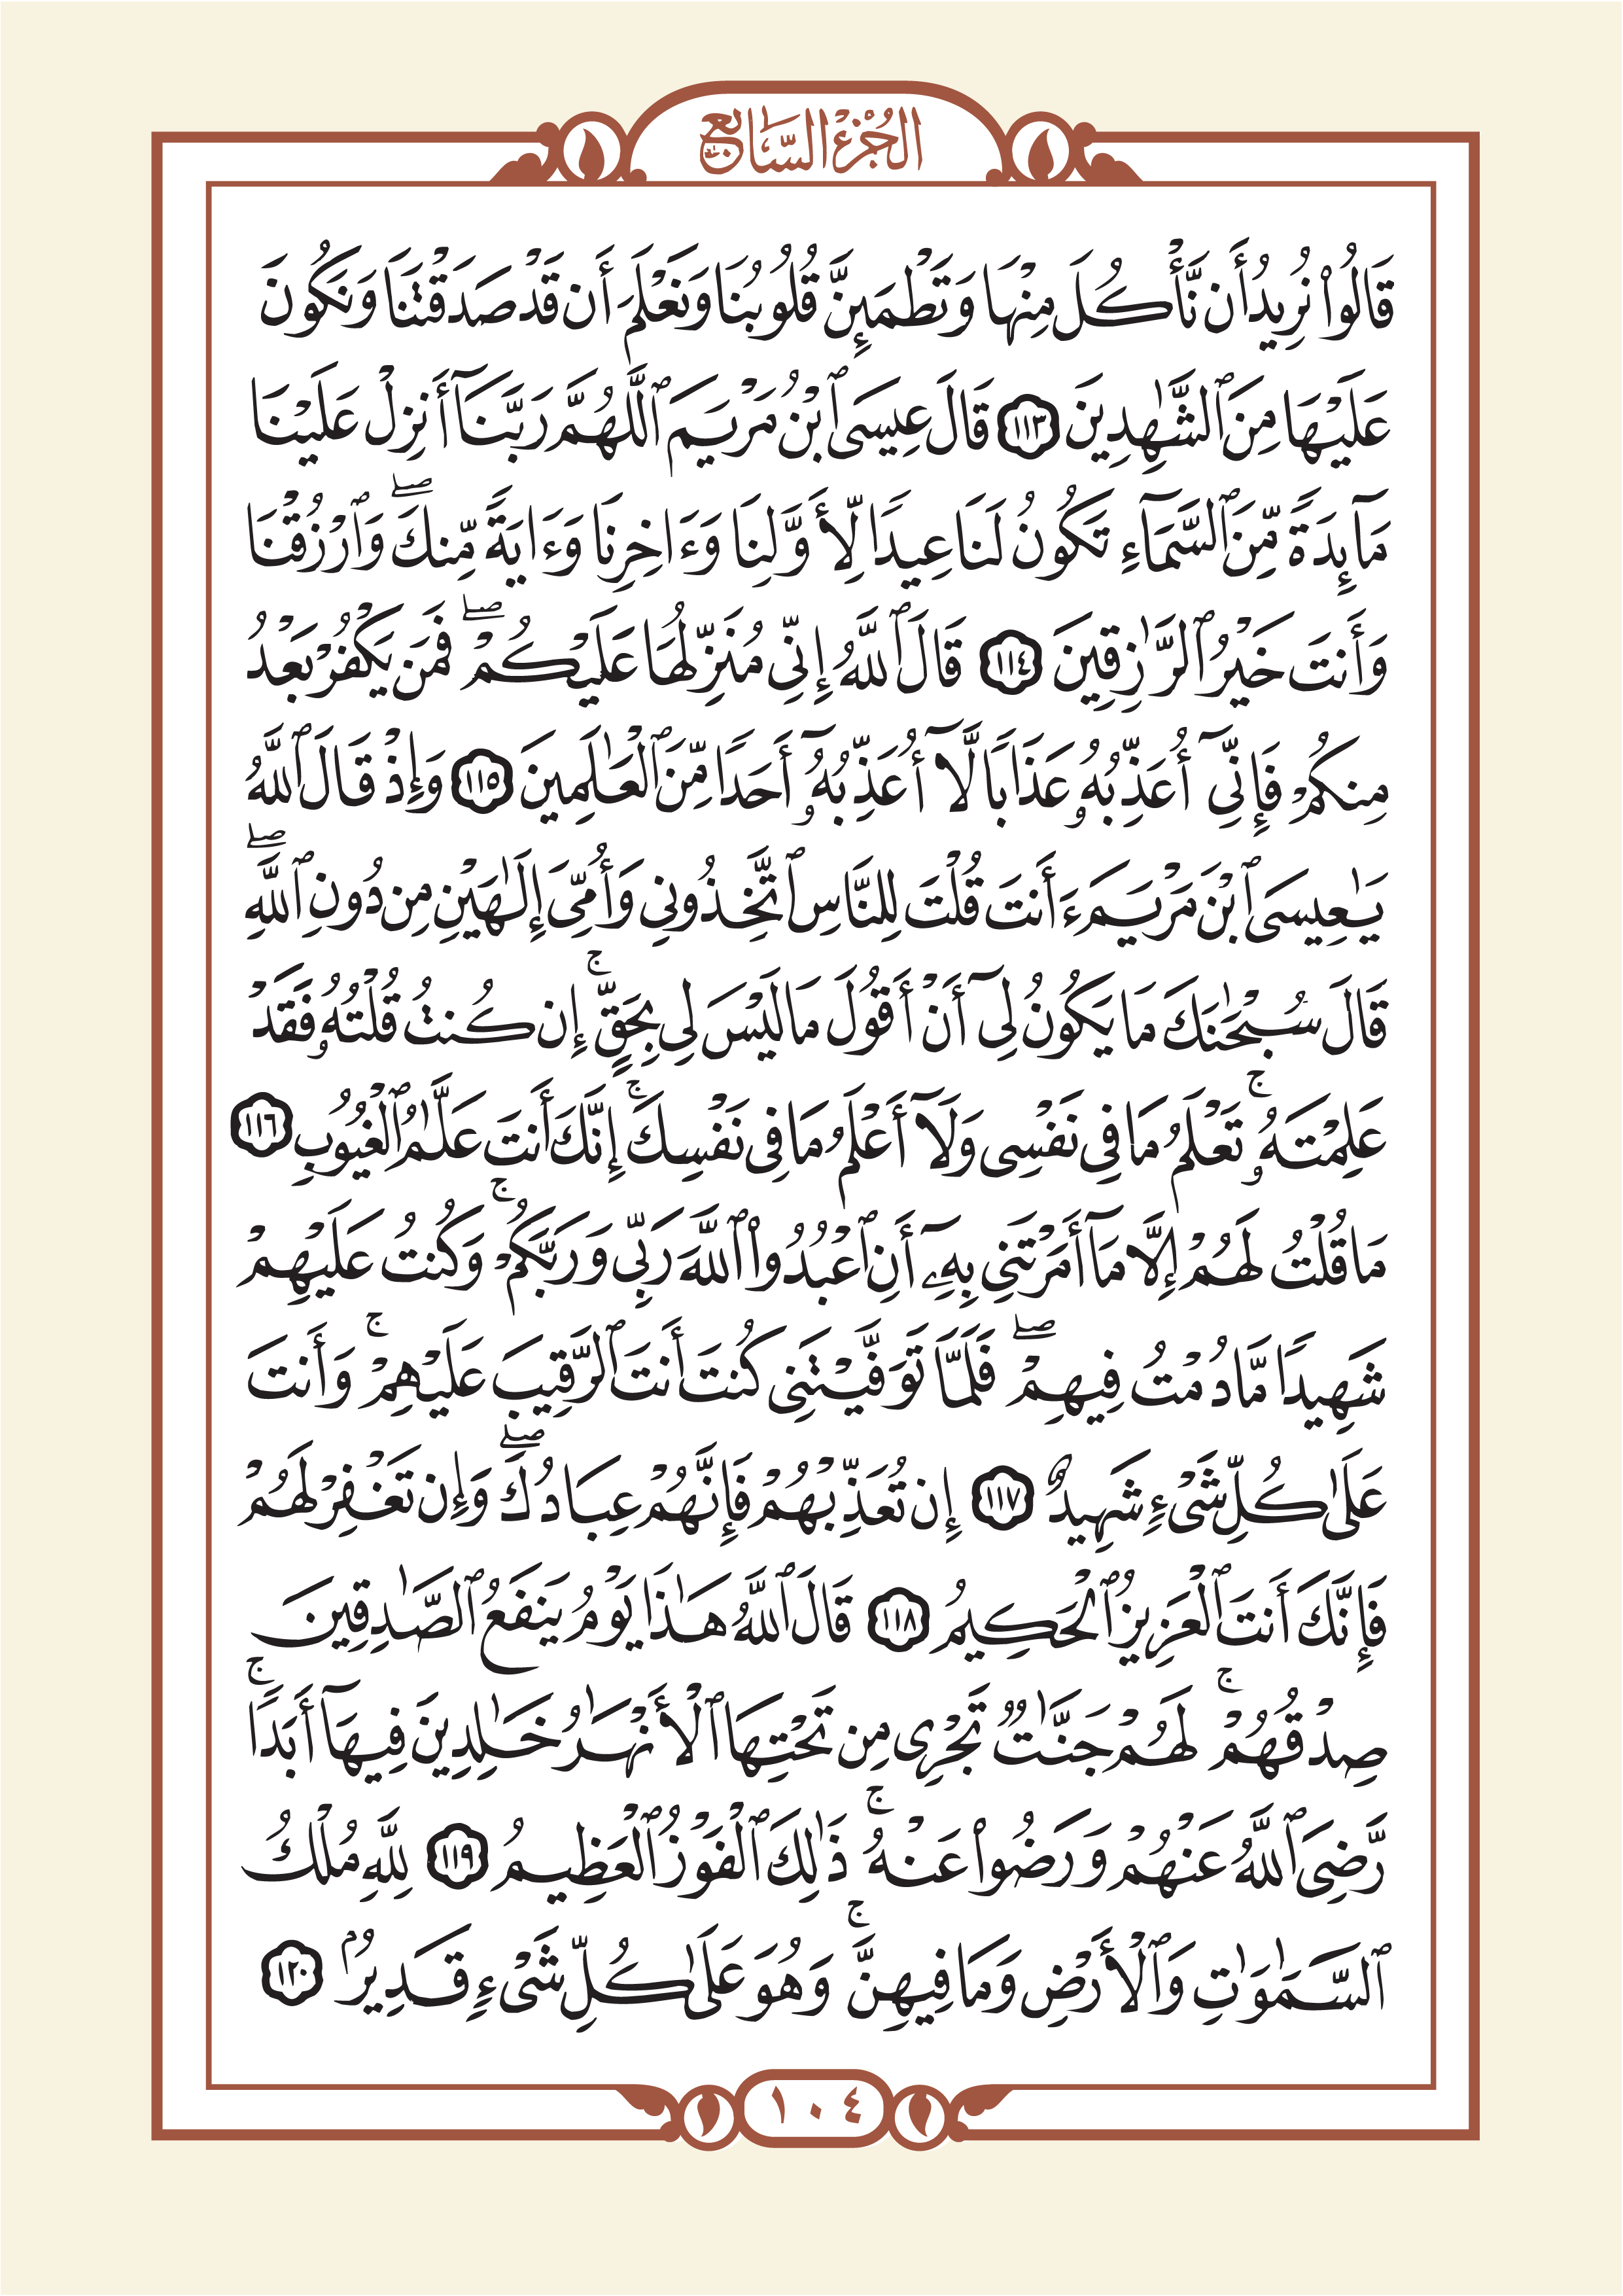 الجزء السابع
قَالُوا۟ نُرِيدُ أَن نَّأْكُلَ مِنْهَا وَتَطْمَئِنَّ قُلُوبُنَا وَنَعْلَمَ أَن قَدْ صَدَقْتَنَا وَنَكُونَ
عَلَيْهَا مِنَ ٱلشَّـٰهِدِينَ ١١٣ قَالَ عِيسَى ٱبْنُ مَرْيَمَ ٱللَّهُمَّ رَبَّنَآ أَنزِلْ عَلَيْنَا
مَآئِدَةً مِّنَ ٱلسَّمَآءِ تَكُونُ لَنَا عِيدًا لِّأَوَّلِنَا وَءَاخِرِنَا وَءَايَةً مِّنكَ ۖ وَٱرْزُقْنَا
وَأَنتَ خَيْرُ ٱلرَّٰزِقِينَ ١١٤ قَالَ ٱللَّهُ إِنِّى مُنَزِّلُهَا عَلَيْكُمْ ۖ فَمَن يَكْفُرْ بَعْدُ
مِنكُمْ فَإِنِّىٓ أُعَذِّبُهُۥ عَذَابًا لَّآ أُعَذِّبُهُۥٓ أَحَدًا مِّنَ ٱلْعَـٰلَمِينَ ١١٥ وَإِذْ قَالَ ٱللَّهُ
يَـٰعِيسَى ٱبْنَ مَرْيَمَ ءَأَنتَ قُلْتَ لِلنَّاسِ ٱتَّخِذُونِى وَأُمِّىَ إِلَـٰهَيْنِ مِن دُونِ ٱللَّهِ ۖ
قَالَ سُبْحَـٰنَكَ مَا يَكُونُ لِىٓ أَنْ أَقُولَ مَا لَيْسَ لِى بِحَقٍّ ۚ إِن كُنتُ قُلْتُهُۥ فَقَدْ
عَلِمْتَهُۥ ۚ تَعْلَمُ مَا فِى نَفْسِى وَلَآ أَعْلَمُ مَا فِى نَفْسِكَ ۚ إِنَّكَ أَنتَ عَلَّـٰمُ ٱلْغُيُوبِ ١١٦
مَا قُلْتُ لَهُمْ إِلَّا مَآ أَمَرْتَنِى بِهِۦٓ أَنِ ٱعْبُدُوا۟ ٱللَّهَ رَبِّى وَرَبَّكُمْ ۚ وَكُنتُ عَلَيْهِمْ
شَهِيدًا مَّا دُمْتُ فِيهِمْ ۖ فَلَمَّا تَوَفَّيْتَنِى كُنتَ أَنتَ ٱلرَّقِيبَ عَلَيْهِمْ ۚ وَأَنتَ
عَلَىٰ كُلِّ شَىْءٍ شَهِيدٌ ١١٧ إِن تُعَذِّبْهُمْ فَإِنَّهُمْ عِبَادُكَ ۖ وَإِن تَغْفِرْ لَهُمْ
فَإِنَّكَ أَنتَ ٱلْعَزِيزُ ٱلْحَكِيمُ ١١٨ قَالَ ٱللَّهُ هَـٰذَا يَوْمُ يَنفَعُ ٱلصَّـٰدِقِينَ
صِدْقُهُمْ ۚ لَهُمْ جَنَّـٰتٌ تَجْرِى مِن تَحْتِهَا ٱلْأَنْهَـٰرُ خَـٰلِدِينَ فِيهَآ أَبَدًا ۚ
رَّضِىَ ٱللَّهُ عَنْهُمْ وَرَضُوا۟ عَنْهُ ۚ ذَٰلِكَ ٱلْفَوْزُ ٱلْعَظِيمُ ١١٩ لِلَّهِ مُلْكُ
ٱلسَّمَـٰوَٰتِ وَٱلْأَرْضِ وَمَا فِيهِنَّ ۚ وَهُوَ عَلَىٰ كُلِّ شَىْءٍ قَدِيرٌۢ ١٢٠
١٠٤